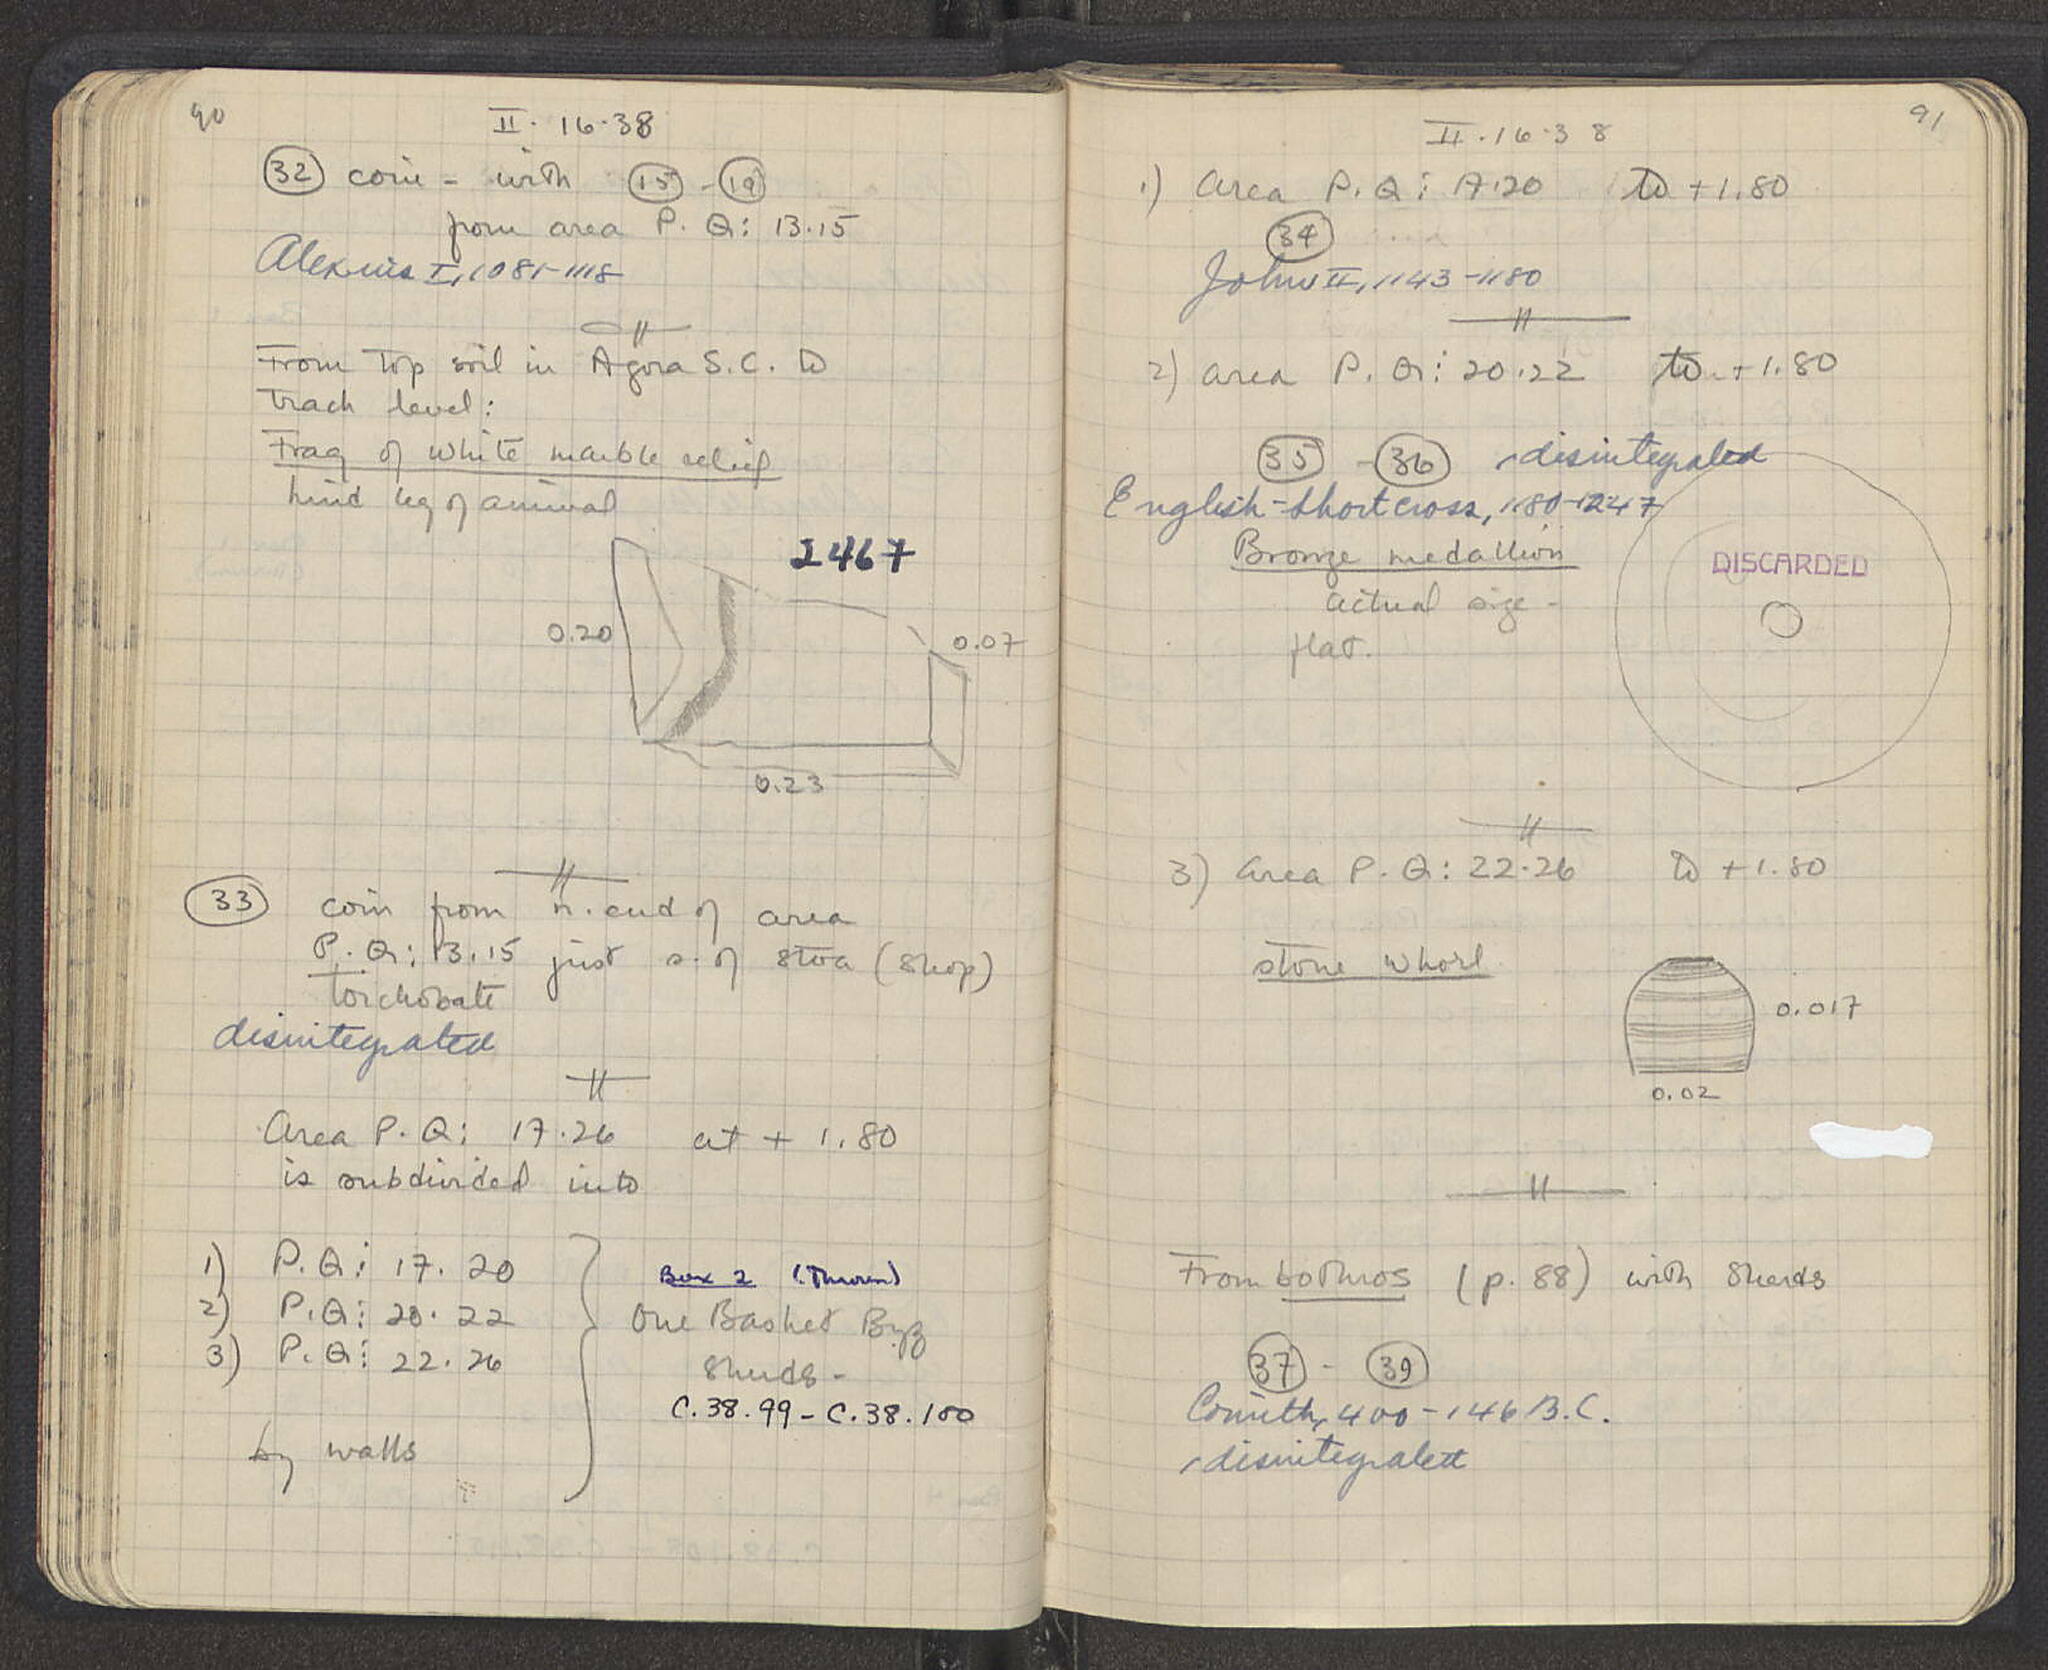 90
II. 16.38
32 coin - with 15 - 19
from area P. Q: 13.15
Alexius I, 1081-1118
From top soil in Agora S.C. to
track level:
Frag of white marble relief
hind leg of animal
2467
0.20
0.07
0.23
33 coin from n. end of area
P. Q: 13.15 just s. of stoa (shop)
toichobate
disintegrated
Area P. Q: 17.26 at + 1.80
is subdivided into
1) P. Q: 17. 20
2) P. Q: 20. 22
3) P. Q: 22. 26
by walls
Box 2 (Thrown)
One Basket Byz
sherds -
C.38.99 - C.38.100
91
II. 16.38
1) area P. Q: 17.20 to + 1.80
34
John II, 1143-1180
2) area P. Q: 20.22 to + 1.80
35 - 36 disintegrated
English - short cross, 1180-1247
Bronze medallion
actual size -
flat.
DISCARDED
3) area P. Q: 22.26 to + 1.80
stone whorl
0.017
0.02
From bothros (p. 88) with sherds
37 - 39
Corinth, 400-146 B.C.
disintegrated